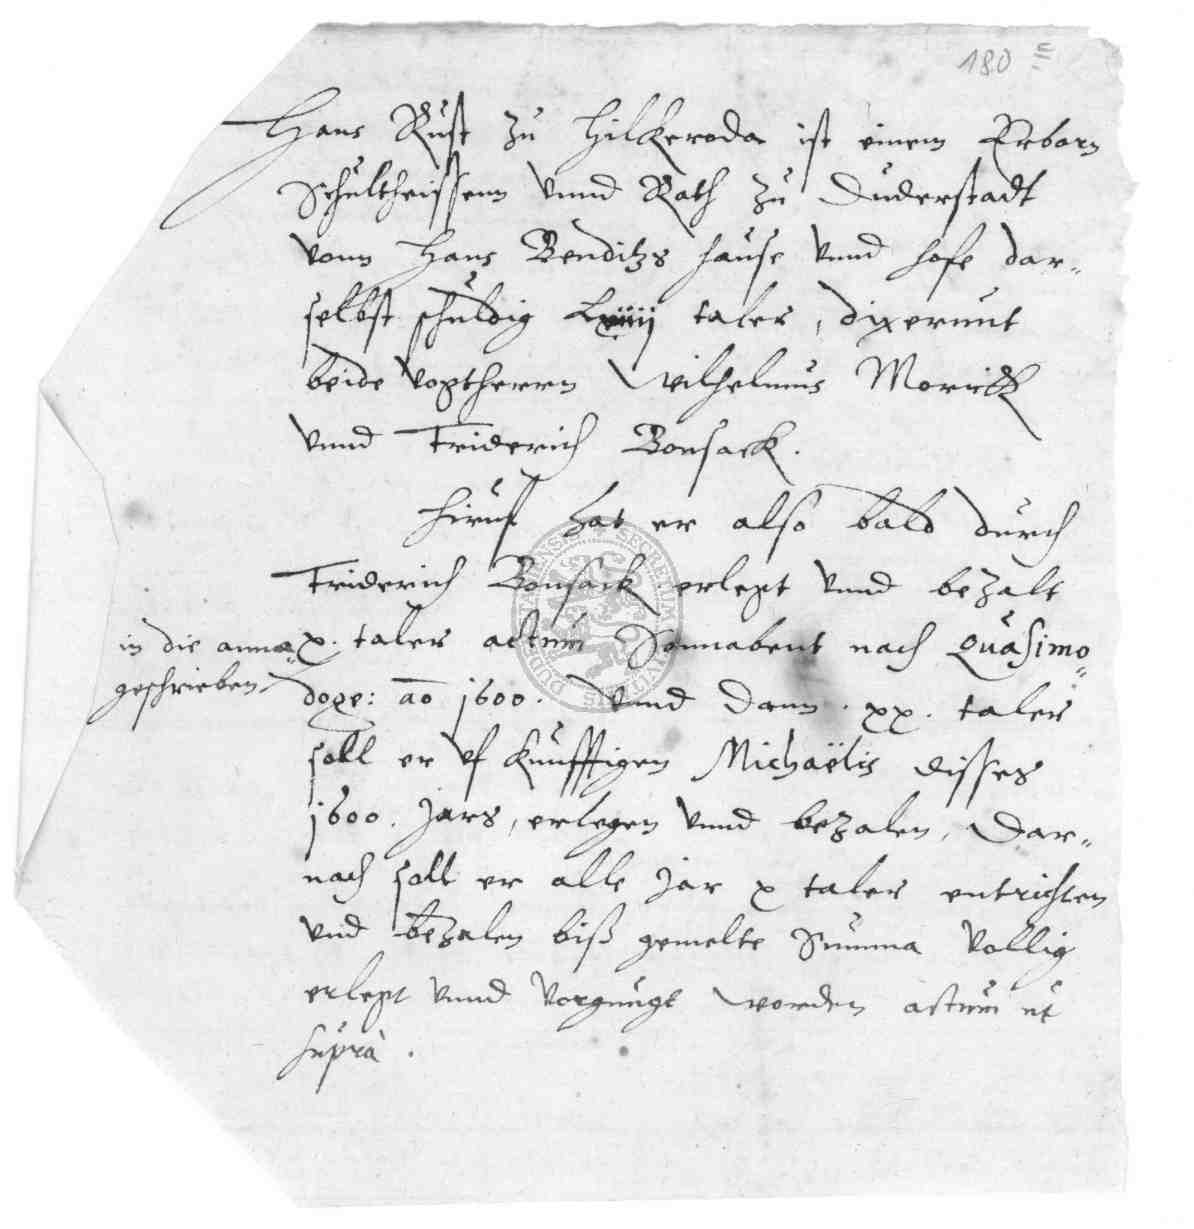 180
Hans Rust zu Hilkeroda ist einem Erbarn
Schultheissenn vnnd Rath zu Duderstadt
vonn Hans Benditzs hause vnnd hofe dar-
selbst schuldig taler, dixerunt
beide Voptherrn Wilhelmus Morick
vnnd Friderich Bonsack.
Hiruf hat er also bald durch
Friderich Bonsack erlegt vnnd bezalt
x. taler actum Sonnabent nach Quasimo-
doge: ao 1600. Vnnd dann . xx. taler
soll er vf künfftigen Michaëlis disses
1600. Jars, erlegen vnnd bezalen, Dar-
nach soll er alle Jar x taler entrichten
vnd bezalen biß gemelte Summa vollig
erlegt vnnd vorgnugt worden actum ut
supra.
in die
geschrieben